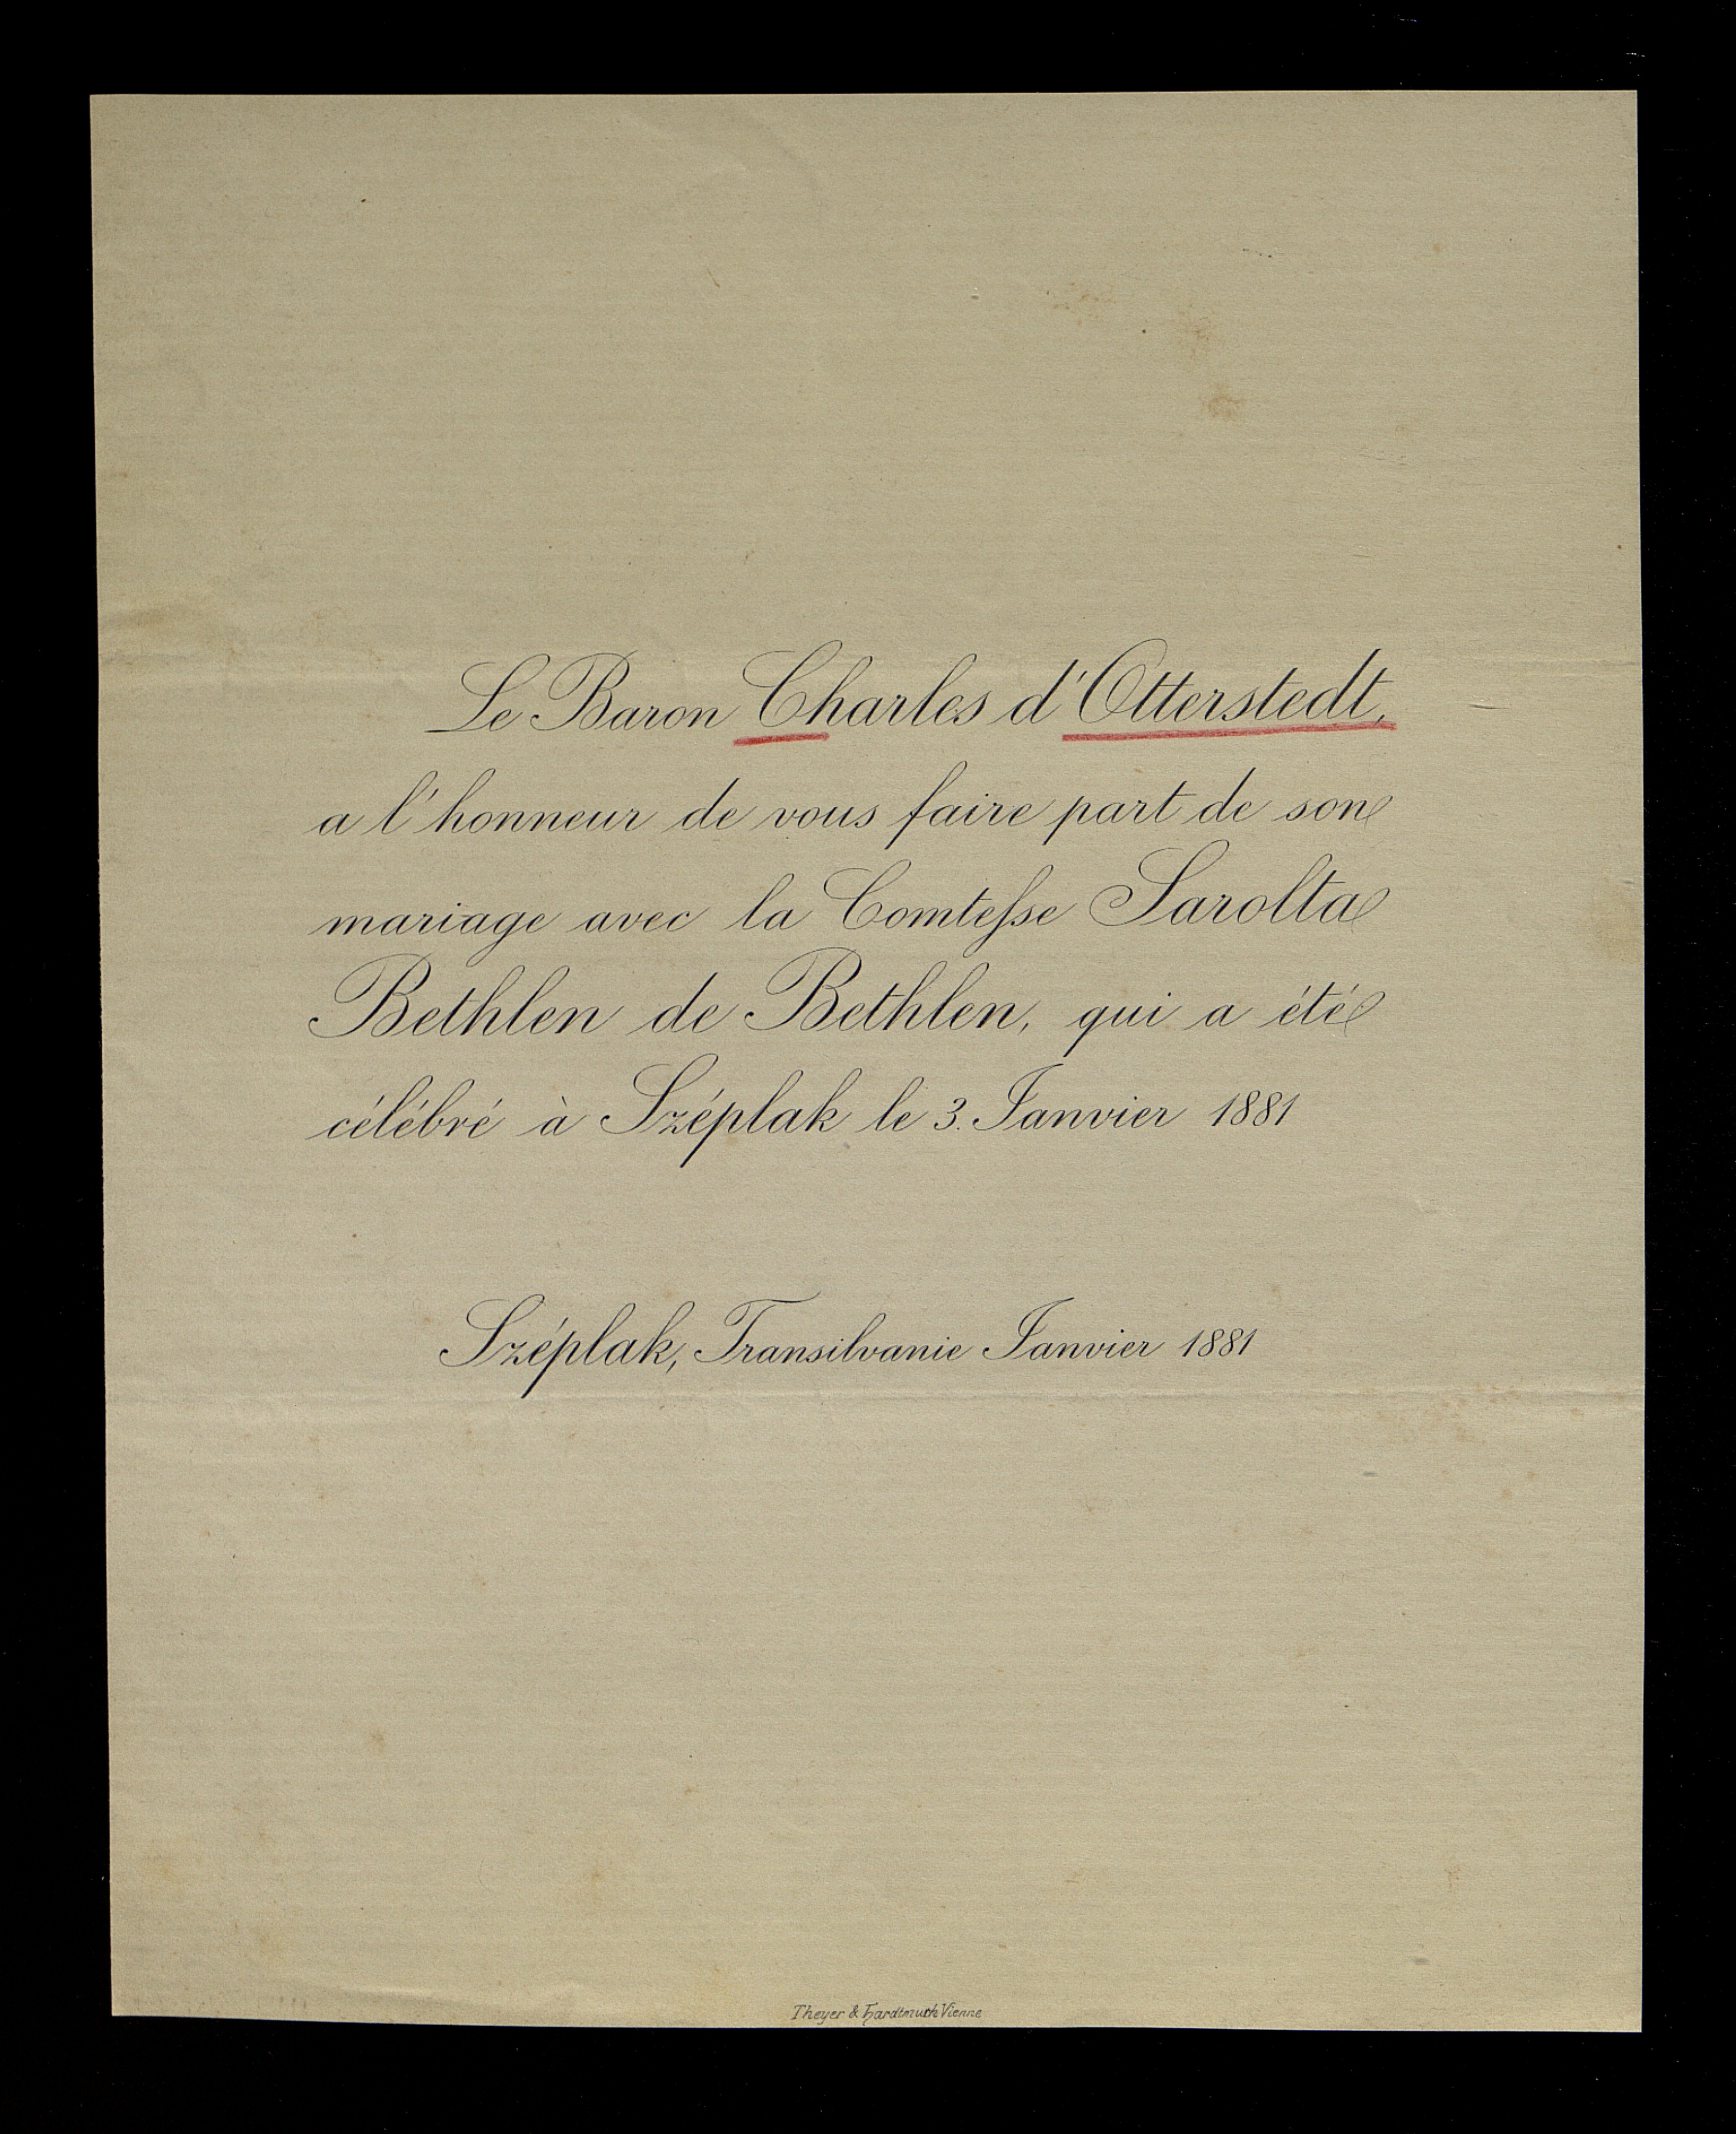 Le Baron Charles d'Otterstedt,
a l'honneur de vous faire part de son
mariage avec la Comteſse Sarolta
Bethlen de Bethlen, qui a été
célébré à Széplak le 3. Janvier 1881
Széplak, Transilvanie Janvier 1881
Theyer & Hardtmuth Vienne